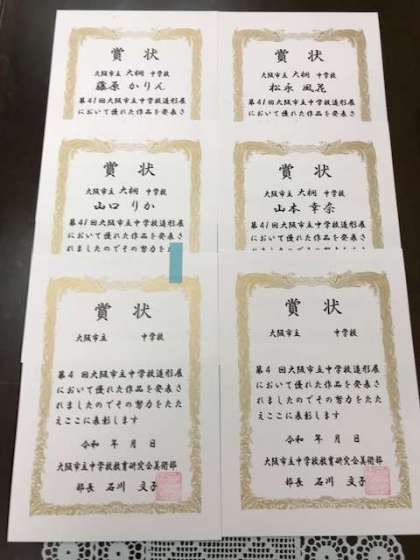 賞状
大阪市立 大桐 中学校
藤原 かりん
第41回大阪市立中学校造形展
において優れた作品を発表さ
賞状
大阪市立 大桐 中学校
松永 風花
第41回大阪市立中学校造形展
において優れた作品を発表さ
賞状
大阪市立 大桐 中学校
山口 りか
第41回大阪市立中学校造形展
において優れた作品を発表さ
れましたのでその努力をたた
賞状
大阪市立 大桐 中学校
山本 幸奈
第41回大阪市立中学校造形展
において優れた作品を発表さ
れましたのでその努力をたた
賞状
大阪市立 中学校
第4 回大阪市立中学校造形展
において優れた作品を発表さ
れましたのでその努力をたた
えここに表彰します
令和 年 月 日
大阪市立中学校教育研究会美術部
部長 石川 文子
賞状
大阪市立 中学校
第4 回大阪市立中学校造形展
において優れた作品を発表さ
れましたのでその努力をたた
えここに表彰します
令和 年 月 日
大阪市立中学校教育研究会美術部
部長 石川 文子